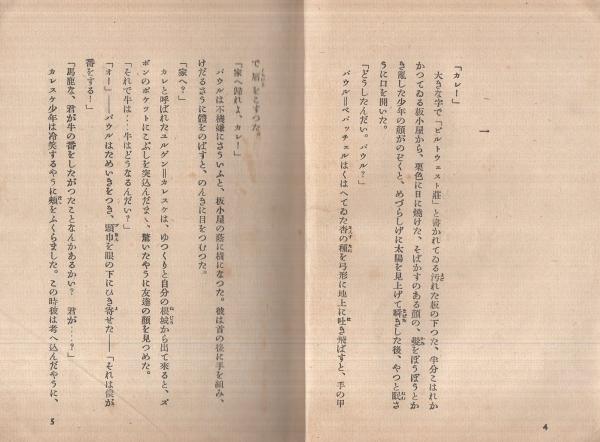 一
「カレー」
大きな字で「ビルトウェスト莊」と書かれてゐる汚れた板の下つた、半分こはれか
かつてゐる板小屋から、栗色に日に燒けた、そばかすのある顏の、髮をぼうぼうとか
き亂した少年の顏がのぞくと、めづらしげに太陽を見上げて瞬きした後、やつと眠さ
うに口を開いた。
「どうしたんだい。パウル？」
パウル＝ペパッチェルはくはへてゐた杏の種を弓形に地上に吐き飛ばすと、手の甲
4
で唇をこすつた。
「家へ歸れよ、カレー」
パウルは不機嫌にさういふと、板小屋の蔭に横になつた。彼は首の後に手を組み、
けだるさうに體をのばすと、のんきに目をつむつた。
「家へ？」
カレと呼ばれたユルゲン＝カレスケは、ゆつくりと自分の根城から出て來ると、ズ
ボンのポケットにこぶしを突込んだまゝ、驚いたやうに友達の顏を見つめた。
「それで牛は…牛はどうなるんだい？」
「オー」――パウルはためいきをつき、頭巾を眼の下にひき寄せた――「それは僕が
番をする！」
「馬鹿な、君が牛の番をしたがつたことなんかあるかい？　君が…？」
カレスケ少年は冷笑するやうに頰をふくらました。この時彼は考へ込んだやうに、
5